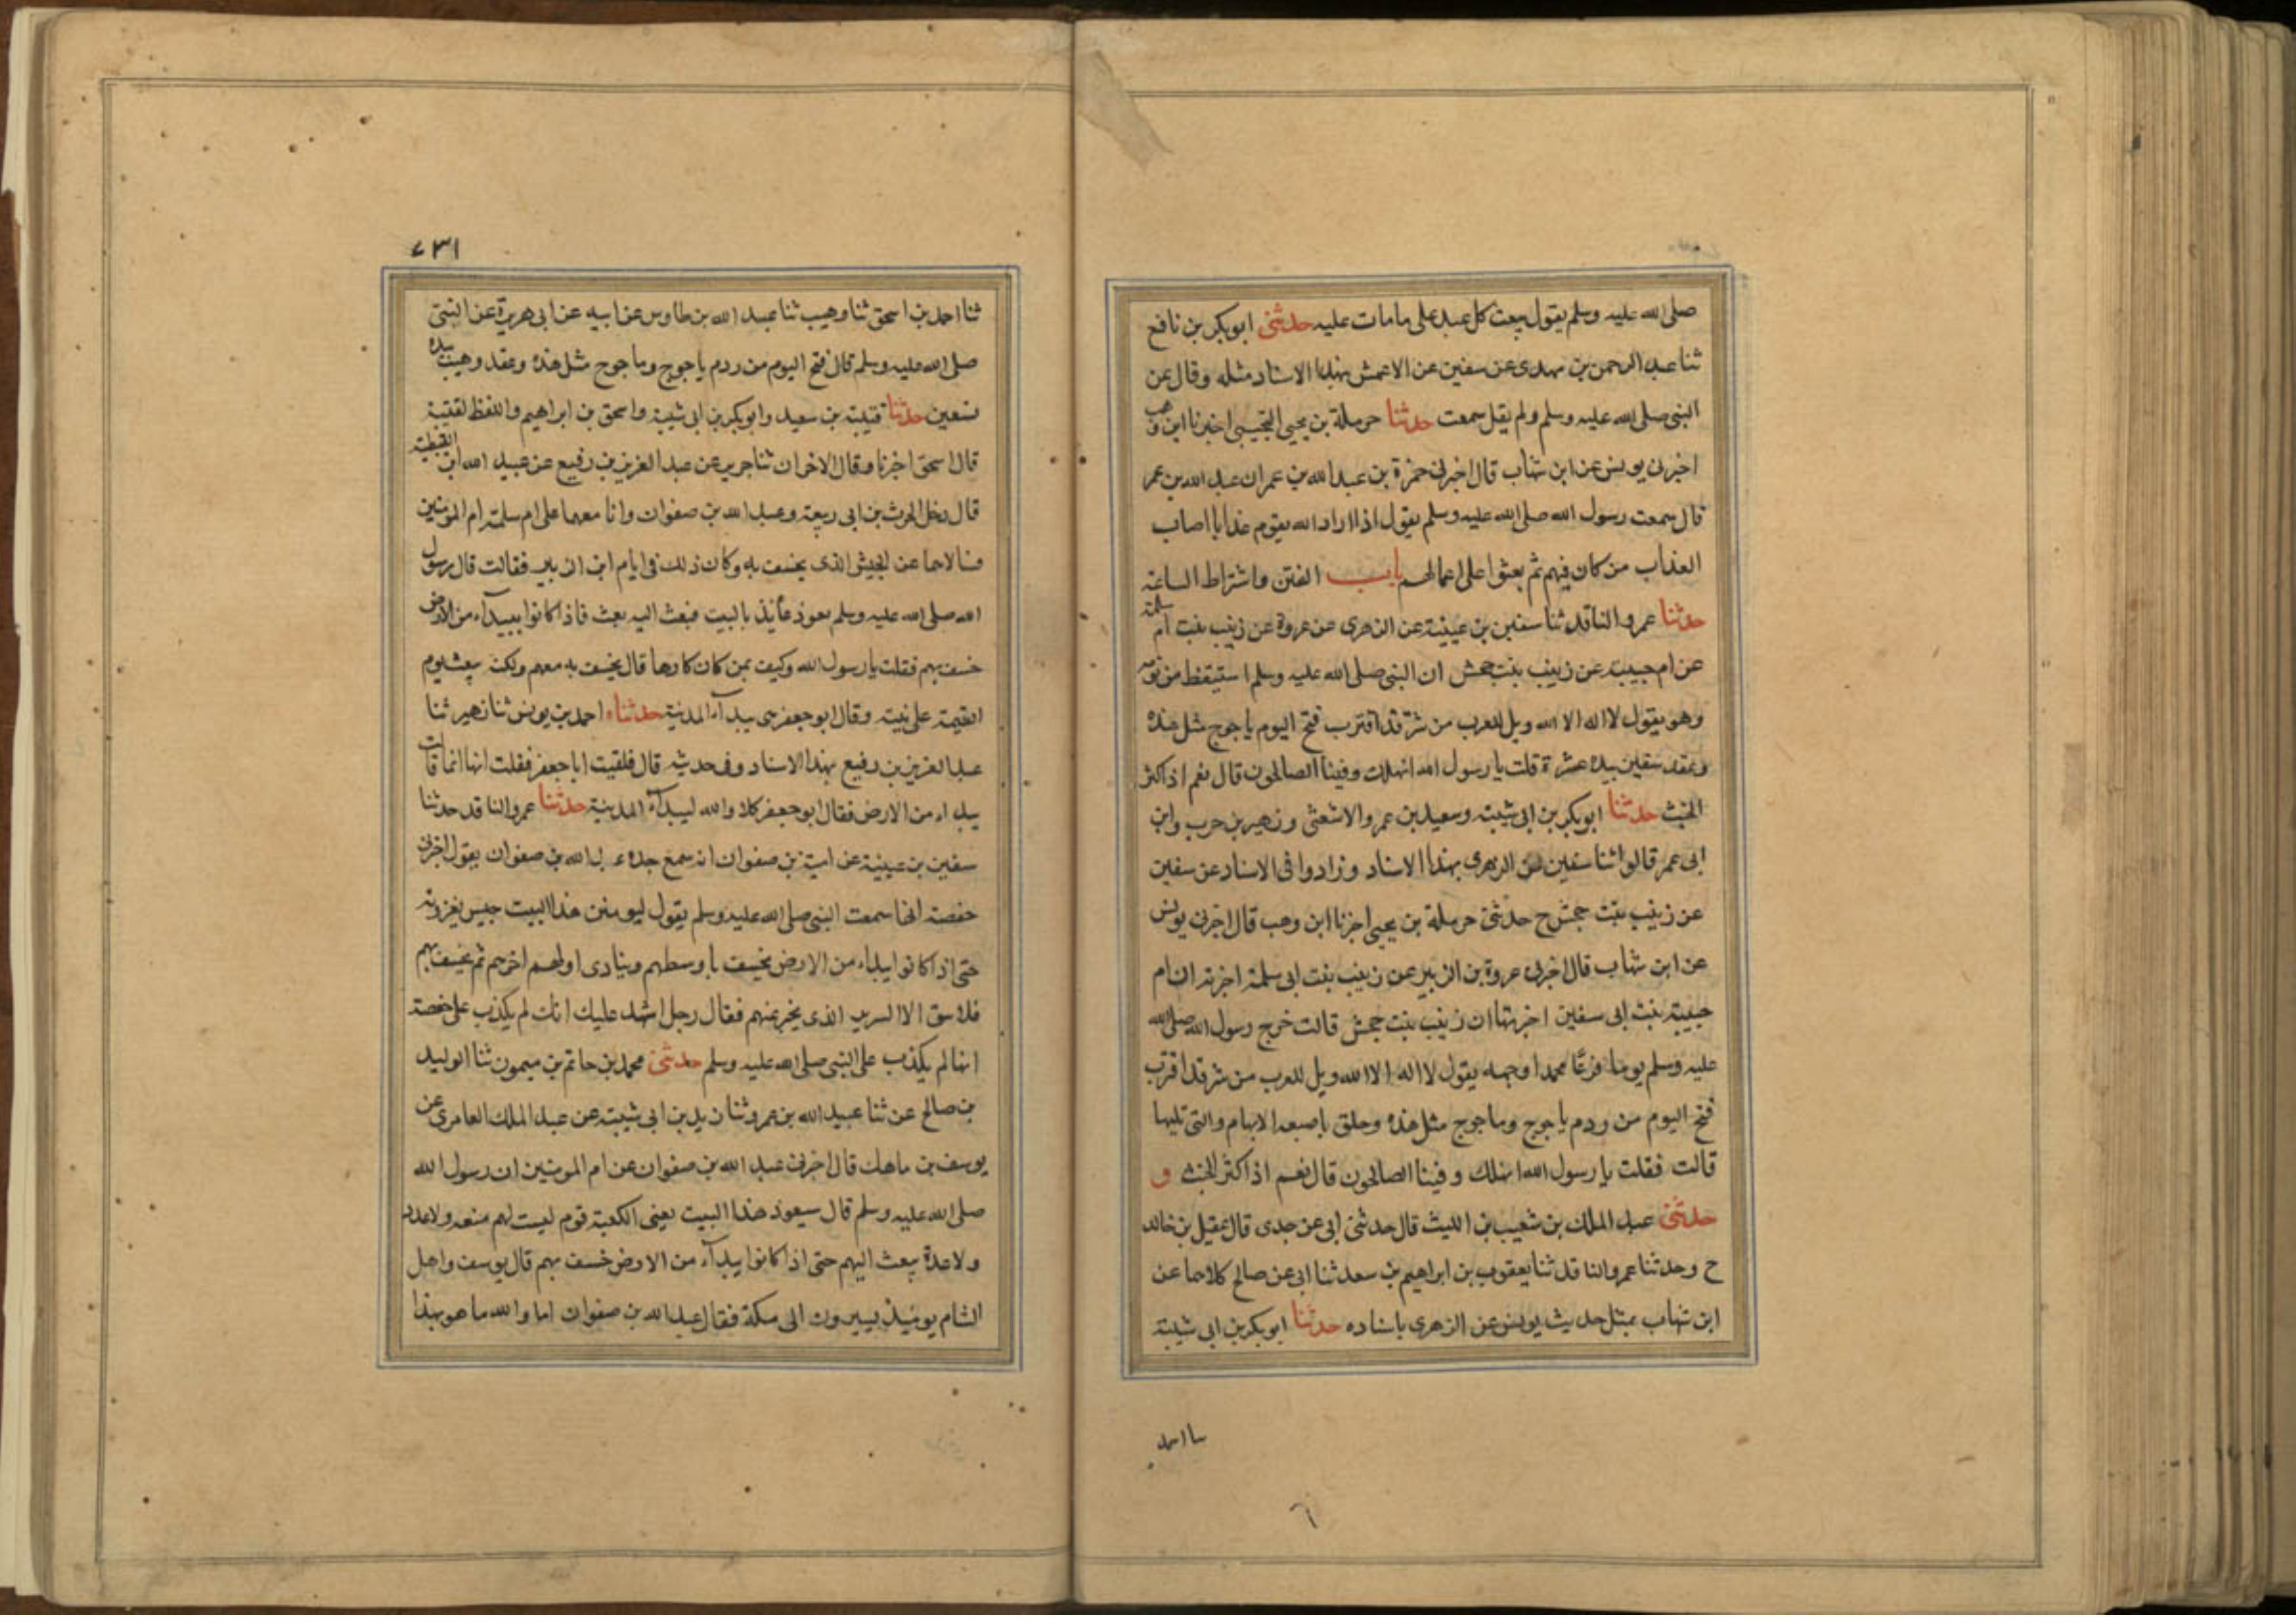 صلى الله عليه وسلم يقول يبعث كل عبد على ما مات عليه حدثنى ابوبكر بن نافع
ثنا عبد الرحمن بن مهدى عن سفين عن الاعمش بهذا الاسناد مثله وقال عن
النبى صلى الله عليه وسلم ولم يقل سمعت حدثنا حرملة بن يحيى التجيبى اخبرنا ابن وهب
اخبرنى يونس عن ابن شهاب قال اخبرنى حمزة بن عبد الله بن عمر ان عبد الله بن عمر
قال سمعت رسول الله صلى الله عليه وسلم يقول اذا اراد الله بقوم عذابا اصاب
العذاب من كان فيهم ثم بعثوا على اعمالهم باب الفتن واشتراط الساعة
حدثنا عمرو الناقد ثنا سفين بن عيينة عن الزهرى عن عروة عن زينب بنت ام سلمة
عن ام حبيبة عن زينب بنت جحش ان النبى صلى الله عليه وسلم استيقظ من نومه
وهو يقول لا اله الا الله ويل للعرب من شر قد اقترب فتح اليوم ياجوج مثل هذه
وعقد سفين بيده عشرة قلت يا رسول الله انهلك وفينا الصالحون قال نعم اذا كثر
الخبث حدثنا ابوبكر بن ابى شيبة وسعيد بن عمرو الاشعثى وزهير بن حرب وابن
ابى عمر قالوا ثنا سفين عن الزهرى بهذا الاسناد وزادوا فى الاسناد عن سفين
عن زينب بنت جحش ح حدثنى حرملة بن يحيى اخبرنا ابن وهب قال اخبرنى يونس
عن ابن شهاب قال اخبرنى عروة بن الزبير عن زينب بنت ابى سلمة اخبرته ان ام
حبيبة بنت ابى سفين اخبرتها ان زينب بنت جحش قالت خرج رسول الله صلى الله
عليه وسلم يوما فزعًا محمدا وجهه يقول لا اله الا الله ويل للعرب من شر قد اقترب
فتح اليوم من ردم ياجوج وماجوج مثل هذه وحلق باصبعه الابهام والتى تليها
قالت فقلت يا رسول الله انهلك وفينا الصالحون قال نعم اذا كثر الخبث و
حدثنى عبد الملك بن شعيب بن الليث قال حدثنى ابى عن جدى قال عقيل بن خالد
ح وحدثنا عمرو الناقد ثنا يعقوب بن ابراهيم بن سعد ثنا ابى عن صالح كلاهما عن
ابن شهاب بمثل حديث يونس عن الزهرى باسناده حدثنا ابوبكر بن ابى شيبة
ثنا احمد
٦
٧٣١
ثنا احمد بن اسحق ثنا وهيب ثنا عبد الله بن طاوس عن ابيه عن ابى هريرة عن النبى
صلى الله عليه وسلم قال فتح اليوم من ردم ياجوج وماجوج مثل هذه وعقد وهيب بيده
تسعين حدثنا قتيبة بن سعيد وابوبكر بن ابى شيبة واسحق بن ابراهيم واللفظ لقتيبة
قال اسحق اخبرنا وقال الاخران ثنا جرير عن عبد العزيز بن رفيع عن عبيد الله ابن القبطية
قال دخل الحرث بن ابى ربيعة وعبد الله بن صفوان وانا معهما على ام سلمة ام المومنين
فسالاها عن الجيش الذى يخسف به وكان ذلك فى ايام ابن الزبير فقالت قال رسول
الله صلى الله عليه وسلم يعوذ عائذ بالبيت فبعث اليه بعث فاذا كانوا ببيدآء من الارض
خسف بهم فقلت يا رسول الله وكيف بمن كان كارها قال يخسف به معهم ولكنه يبعث يوم
القيمة على نيته وقال ابو جعفر هى بيدآء المدينة حدثناه احمد بن يونس ثنا زهير ثنا
عبد العزيز بن رفيع بهذا الاسناد وفى حديثه قال فلقيت ابا جعفر فقلت انها انما قالت
ببيداء من الارض فقال ابو جعفر كلا والله لبيدآء المدينة حدثنا عمرو الناقد حدثنا
سفين بن عيينة عن امية بن صفوان انه سمع جده عبد الله بن صفوان يقول اخبرتنى
حفصة انها سمعت النبى صلى الله عليه وسلم يقول ليومنن هذا البيت جيس يغزونه
حتى اذا كانوا ببيداء من الارض يخسف باوسطهم وينادى اولهم اخرهم ثم يخسف بهم
فلا يبقى الا الشريد الذى يخبر عنهم فقال رجل اشهد عليك انك لم يكذب على حفصة
انها لم يكذب على النبى صلى الله عليه وسلم حدثنى محمد بن حاتم بن ميمون ثنا الوليد
بن صالح عن ثنا عبيد الله بن عمرو ثنا زيد بن ابى شيبة عن عبد الملك العامرى عن
يوسف بن ماهك قال اخبرنى عبد الله بن صفوان عن ام المومنين ان رسول الله
صلى الله عليه وسلم قال سيعوذ هذا البيت يعنى الكعبة قوم ليست لهم منعة ولا عدد
ولا عدة يبعث اليهم حتى اذا كانوا ببيدآء من الارض خسف بهم قال يوسف واهل
الشام يومئذ يسيرون الى مكة فقال عبد الله بن صفوان اما والله ما هو بهذا